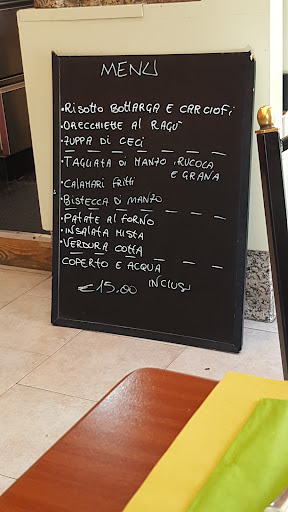 MENU
• RISOTTO BOTTARGA E CARCIOFI
• ORECCHIETTE AL RAGU'
• ZUPPA DI CECI
• TAGLIATA DI MANZO, RUCOLA
E GRANA
• CALAMARI FRITTI
• BISTECCA DI MANZO
• PATATE AL FORNO
• INSALATA MISTA
• VERDURA COTTA
COPERTO E ACQUA
INCLUSI
€15.00